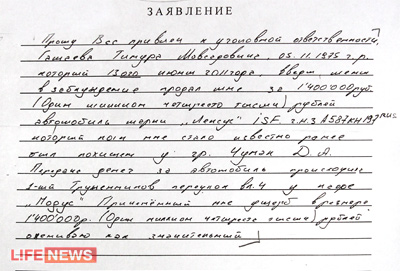 ЗАЯВЛЕНИЕ
Прошу Вас привлеч к уголовной ответственности,
Гашаева Тимура Мовсаровича, 05.11.1975 г.р.
который 13ого июня 2011года, введя меня
в заблуждение продал мне за 1'400'000руб.
(Один миллион четыреста тысяч) рублей
автомобиль марки „Лексус" iSF г.н.з А587КН197RUS
который как мне стало известно ранее
был похищен у гр. Чумак Д.А.
Передача денег за автомобиль происходила
1-ый Труженников переулок вл.4 у кафе
„Модус" Причинённый мне ущерб в размере
1'400'000р. (Один миллион четыреста тысяч) рублей
оцениваю как значительный
LIFENEWS